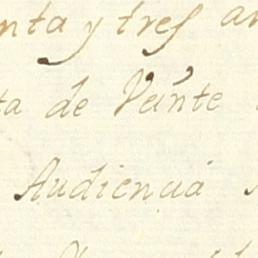 nta y tres
ta de Veinte
Audiencia